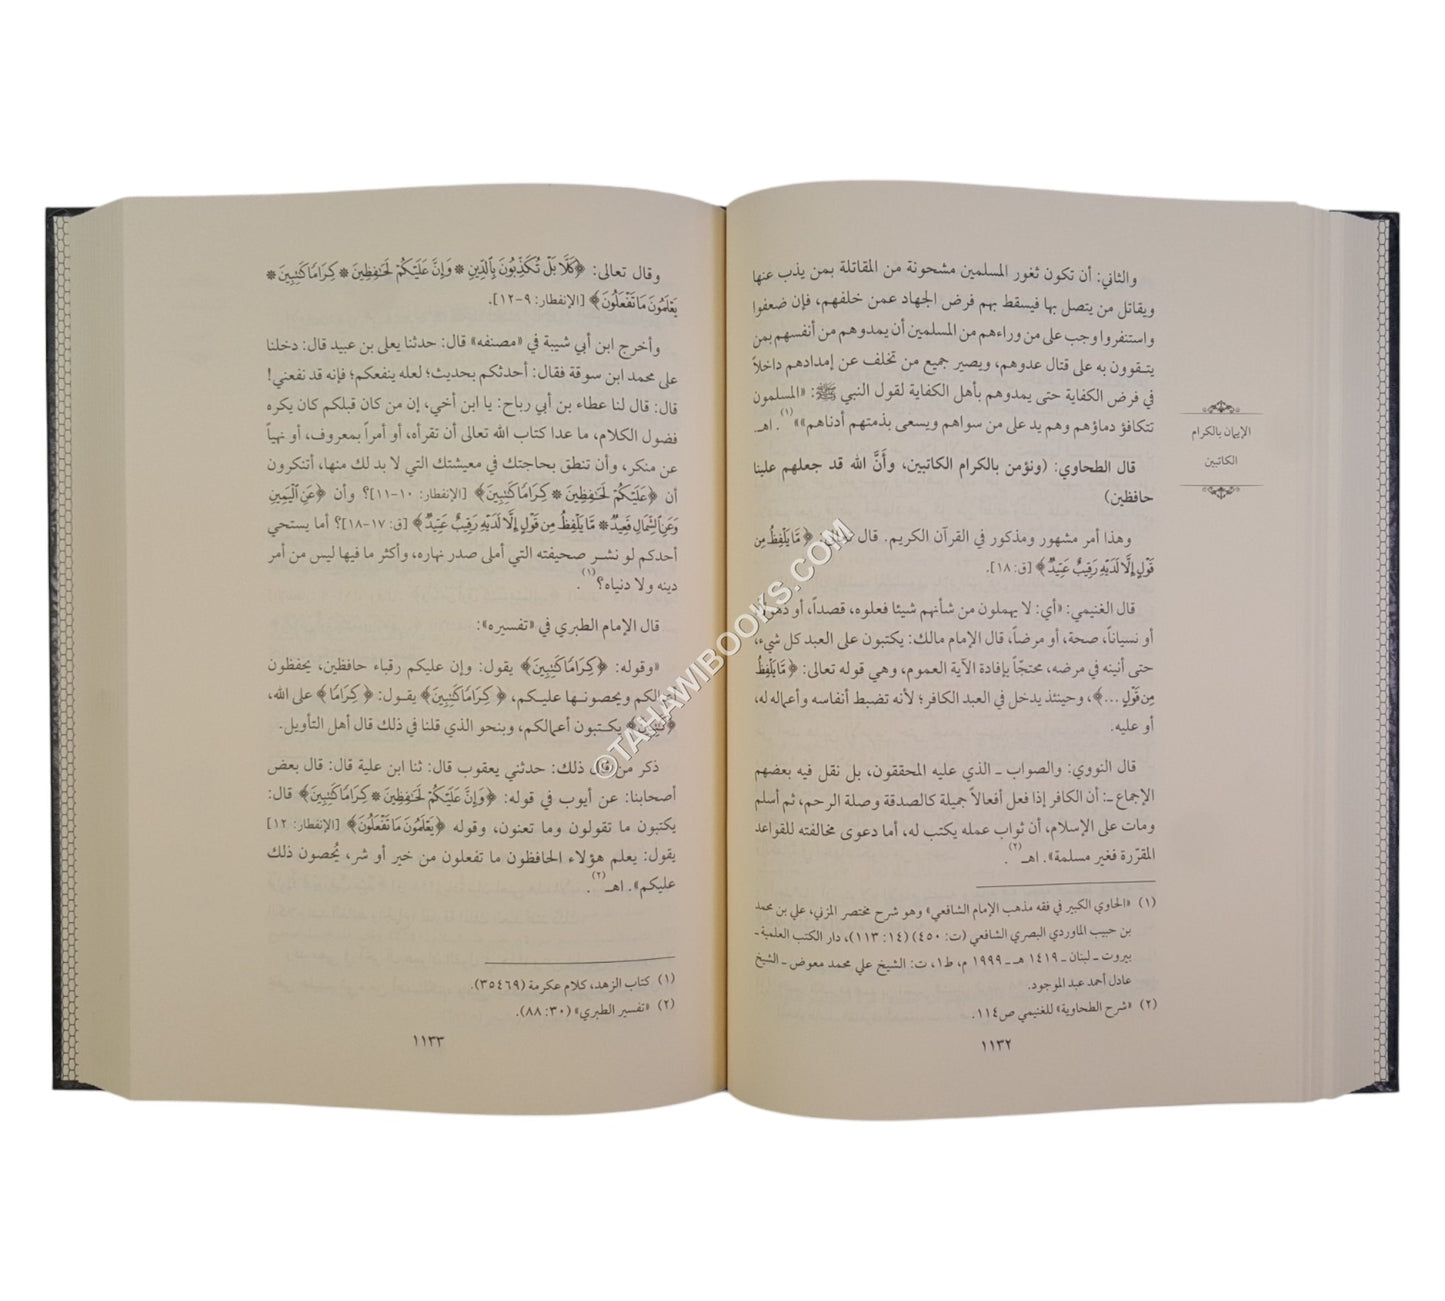 والثاني: أن تكون ثغور المسلمين مشحونة من المقاتلة بمن يذب عنها
ويقاتل من يتصل بها فيسقط بهم فرض الجهاد عمن خلفهم، فإن ضعفوا
واستنفروا وجب على من وراءهم من المسلمين أن يمدوهم من أنفسهم بمن
يتقوون به على قتال عدوهم، ويصير جميع من تخلف عن إمدادهم داخلاً
في فرض الكفاية حتى يمدوهم بأهل الكفاية لقول النبي ﷺ: «المسلمون
تتكافؤ دماؤهم وهم يد على من سواهم ويسعى بذمتهم أدناهم»»(١). اهـ.
الإيمان بالكرام
الكاتبين
قال الطحاوي: (ونؤمن بالكرام الكاتبين، وأَنَّ الله قد جعلهم علينا
حافظين)
وهذا أمر مشهور ومذكور في القرآن الكريم. قال ﴿مَّا يَلْفِظُ مِن
قَوْلٍ إِلَّا لَدَيْهِ رَقِيبٌ عَتِيدٌ﴾ [ق: ١٨].
قال الغنيمي: «أي: لا يهملون من شأنهم شيئا فعلوه، قصداً، أو
أو نسياناً، صحة، أو مرضاً، قال الإمام مالك: يكتبون على العبد كل شيء،
حتى أنينه في مرضه، محتجّاً بإفادة الآية العموم، وهي قوله تعالى: ﴿مَّا يَلْفِظُ
مِن قَوْلٍ ...﴾، وحينئذ يدخل في العبد الكافر؛ لأنه تضبط أنفاسه وأعماله له،
أو عليه.
قال النووي: والصواب ـ الذي عليه المحققون، بل نقل فيه بعضهم
الإجماع ـ: أن الكافر إذا فعل أفعالاً جميلة كالصدقة وصلة الرحم، ثم أسلم
ومات على الإسلام، أن ثواب عمله يكتب له، أما دعوى مخالفته للقواعد
المقرّرة فغير مسلمة». اهـ(٢).
(١) «الحاوي الكبير في فقه مذهب الإمام الشافعي» وهو شرح مختصر المزني، علي بن محمد
بن حبيب الماوردي البصري الشافعي (ت: ٤٥٠) (١٤: ١١٣)، دار الكتب العلمية ـ
بيروت ـ لبنان ـ ١٤١٩ هـ ـ ١٩٩٩ م، ط١، ت: الشيخ علي محمد معوض ـ الشيخ
عادل أحمد عبد الموجود.
(٢) «شرح الطحاوية» للغنيمي ص١١٤.
١١٣٢
وقال تعالى: ﴿كَلَّا بَلْ تُكَذِّبُونَ بِالدِّينِ * وَإِنَّ عَلَيْكُمْ لَحَافِظِينَ * كِرَامًا كَاتِبِينَ *
يَعْلَمُونَ مَا تَفْعَلُونَ﴾ [الإنفطار: ٩-١٢].
وأخرج ابن أبي شيبة في «مصنفه» قال: حدثنا يعلى بن عبيد قال: دخلنا
على محمد ابن سوقة فقال: أحدثكم بحديث؛ لعله ينفعكم؛ فإنه قد نفعني!
قال: قال لنا عطاء بن أبي رباح: يا ابن أخي، إن من كان قبلكم كان يكره
فضول الكلام، ما عدا كتاب الله تعالى أن تقرأه، أو أمراً بمعروف، أو نهياً
عن منكر، وأن تنطق بحاجتك في معيشتك التي لا بد لك منها، أتنكرون
أن ﴿عَلَيْكُمْ لَحَافِظِينَ * كِرَامًا كَاتِبِينَ﴾ [الإنفطار: ١٠-١١]؟ وأن ﴿عَنِ الْيَمِينِ
وَعَنِ الشِّمَالِ قَعِيدٌ * مَّا يَلْفِظُ مِن قَوْلٍ إِلَّا لَدَيْهِ رَقِيبٌ عَتِيدٌ﴾ [ق: ١٧-١٨]؟ أما يستحي
أحدكم لو نشر صحيفته التي أملى صدر نهاره، وأكثر ما فيها ليس من أمر
دينه ولا دنياه؟(١).
قال الإمام الطبري في «تفسيره»:
«وقوله: ﴿كِرَامًا كَاتِبِينَ﴾ يقول: وإن عليكم رقباء حافظين، يحفظون
أعمالكم ويحصونها عليكم، ﴿كِرَامًا كَاتِبِينَ﴾ يقول: ﴿كِرَامًا﴾ على الله،
﴿كَاتِبِينَ﴾ يكتبون أعمالكم، وبنحو الذي قلنا في ذلك قال أهل التأويل.
ذكر من قال ذلك: حدثني يعقوب قال: ثنا ابن علية قال: قال بعض
أصحابنا: عن أيوب في قوله: ﴿وَإِنَّ عَلَيْكُمْ لَحَافِظِينَ * كِرَامًا كَاتِبِينَ﴾ قال:
يكتبون ما تقولون وما تعنون، وقوله ﴿يَعْلَمُونَ مَا تَفْعَلُونَ﴾ [الإنفطار: ١٢]
يقول: يعلم هؤلاء الحافظون ما تفعلون من خير أو شر، يُحصون ذلك
عليكم». اهـ(٢).
(١) كتاب الزهد، كلام عكرمة (٣٥٤٦٩).
(٢) «تفسير الطبري» (٣٠: ٨٨).
١١٣٣
©TAHAWIBOOKS.COM